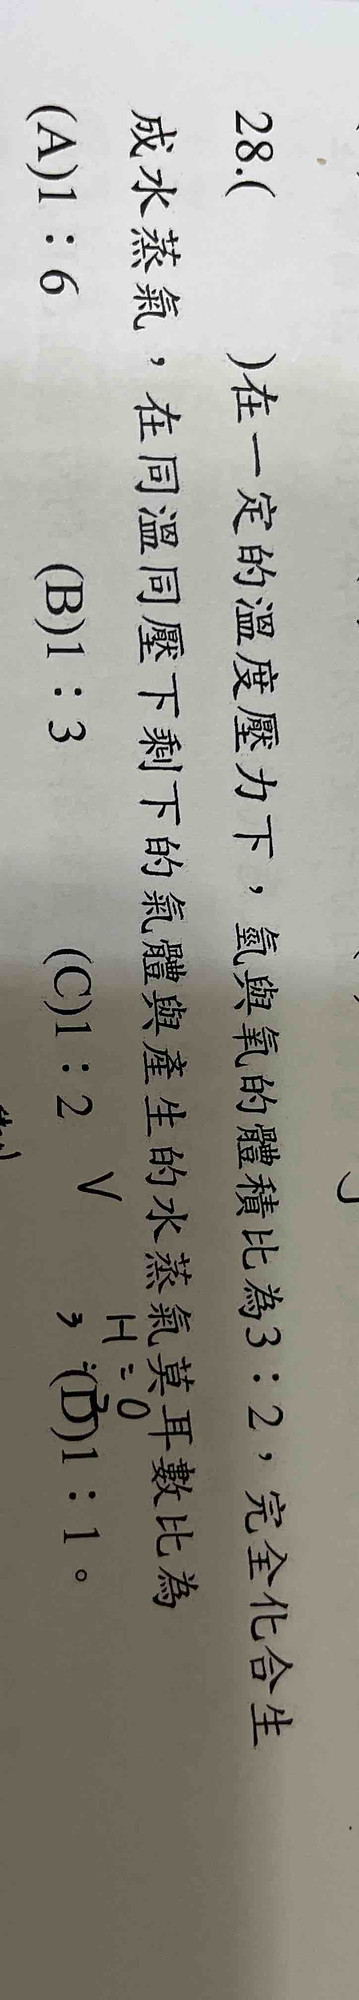 28.(　　)在一定的溫度壓力下，氫與氧的體積比為3：2，完全化合生
成水蒸氣，在同溫同壓下剩下的氣體與產生的水蒸氣莫耳數比為
H : O
(A)1：6　(B)1：3　(C)1：2　(D)1：1。
V 3 : 2